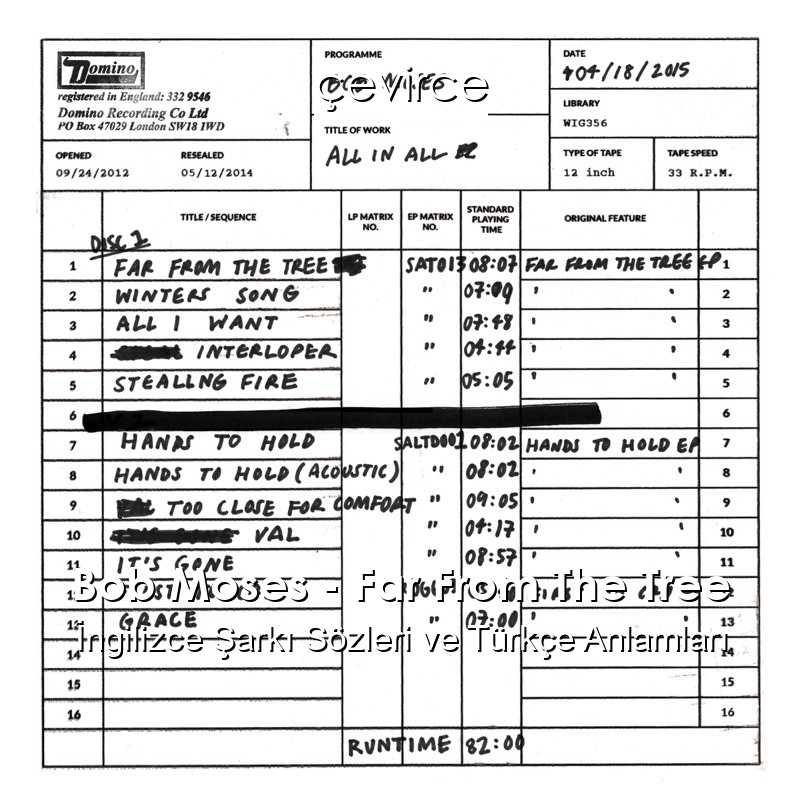 Domino
registered in England: 332 9546
Domino Recording Co Ltd
PO Box 47029 London SW18 1WD
PROGRAMME
çevirce
DATE
04/18/2015
LIBRARY
WIG356
TITLE OF WORK
ALL IN ALL
OPENED
09/24/2012
RESEALED
05/12/2014
TYPE OF TAPE
12 inch
TAPE SPEED
33 R.P.M.
TITLE / SEQUENCE
LP MATRIX NO.
EP MATRIX NO.
STANDARD PLAYING TIME
ORIGINAL FEATURE
DISC 1
1 FAR FROM THE TREE SAT013 08:07 FAR FROM THE TREE EP 1
2 WINTERS SONG " 07:09 ' ' 2
3 ALL I WANT " 07:48 ' ' 3
4 INTERLOPER " 04:44 ' ' 4
5 STEALING FIRE " 05:05 ' ' 5
6 6
7 HANDS TO HOLD SALTD001 08:02 HANDS TO HOLD EP 7
8 HANDS TO HOLD (ACOUSTIC) " 08:02 ' ' 8
9 TOO CLOSE FOR COMFORT " 09:05 ' ' 9
10 VAL " 04:17 ' ' 10
11 IT'S GONE " 08:57 ' ' 11
Bob Moses - Far From The Tree
GRACE " 07:00 ' ' 13
İngilizce Şarkı Sözleri ve Türkçe Anlamları
14 14
15 15
16 16
RUNTIME 82:00